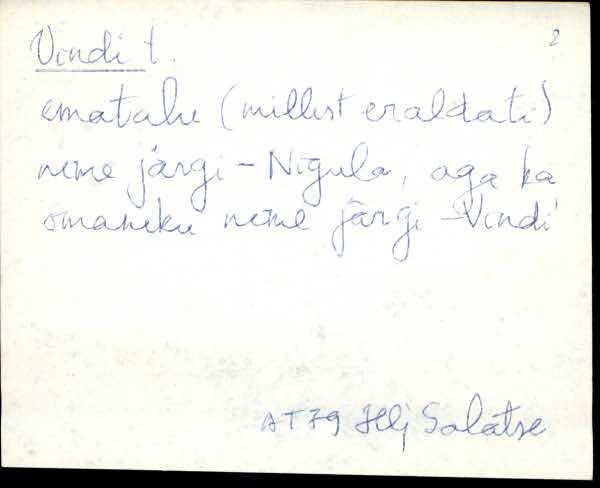 Vindi t. 2
ematalu (millest eraldati)
nime järgi - Nigula, aga ka
omaniku nime järgi - Vindi
AT79 Hlj Salatse